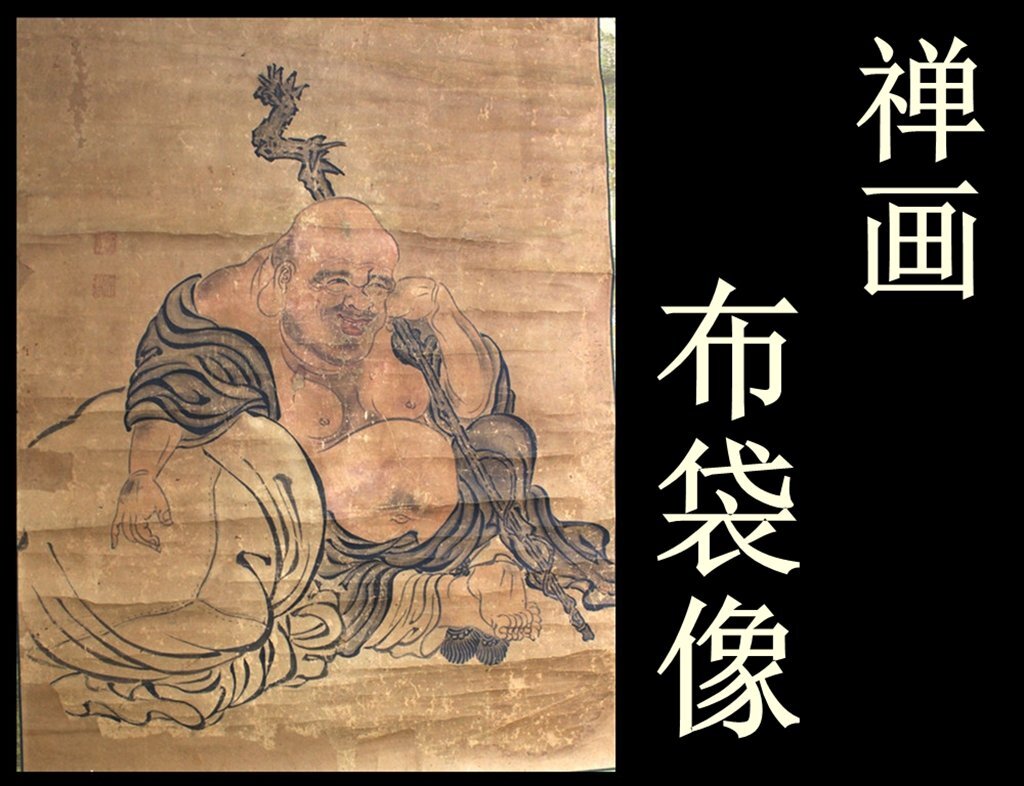 禅画
布袋像